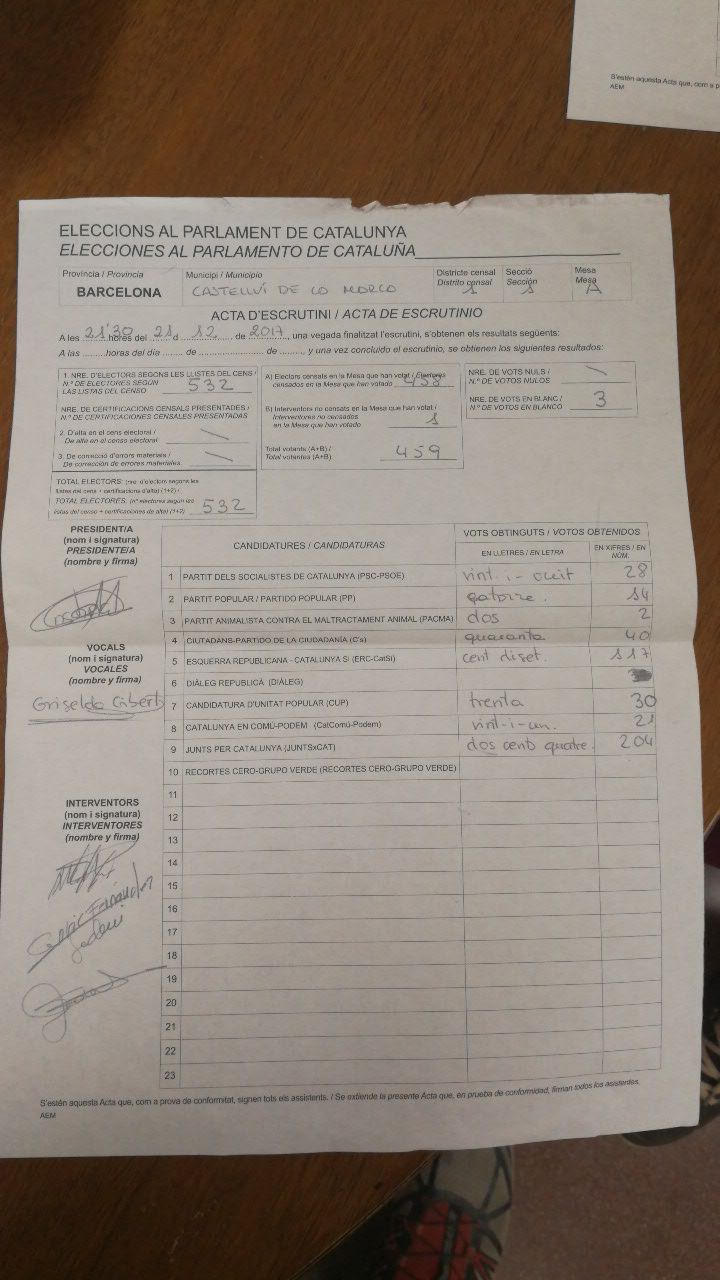 S'estén aquesta Acta que, com a p
AEM
ELECCIONS AL PARLAMENT DE CATALUNYA
ELECCIONES AL PARLAMENTO DE CATALUÑA
Província / Provincia
BARCELONA
Municipi / Municipio
CASTELLVÍ DE LA MARCA
Districte censal
Distrito censal
1
Secció
Sección
1
Mesa
Mesa
A
ACTA D'ESCRUTINI / ACTA DE ESCRUTINIO
A les 21'30 hores del 21 d 12 de 2017, una vegada finalitzat l'escrutini, s'obtenen els resultats següents:
A las ........horas del día ....... de ........................ de ........, y una vez concluido el escrutinio, se obtienen los siguientes resultados:
1. NRE. D'ELECTORS SEGONS LES LLISTES DEL CENS /
N.º DE ELECTORES SEGÚN
LAS LISTAS DEL CENSO
532
NRE. DE CERTIFICACIONS CENSALS PRESENTADES /
N.º DE CERTIFICACIONES CENSALES PRESENTADAS
2. D'alta en el cens electoral /
De alta en el censo electoral
3. De correcció d'errors materials /
De corrección de errores materiales
TOTAL ELECTORS: (nre. d'electors segons les
llistes del cens + certificacions d'alta) (1+2) /
TOTAL ELECTORES: (nº electores según las
listas del censo + certificaciones de alta) (1+2)
532
A) Electors censats en la Mesa que han votat / Electores
censados en la Mesa que han votado 458
B) Interventors no censats en la Mesa que han votat /
Interventores no censados
en la Mesa que han votado
1
Total votants (A+B) /
Total votantes (A+B)
459
NRE. DE VOTS NULS /
N.º DE VOTOS NULOS
NRE. DE VOTS EN BLANC /
N.º DE VOTOS EN BLANCO
3
PRESIDENT/A
(nom i signatura)
PRESIDENTE/A
(nombre y firma)
VOCALS
(nom i signatura)
VOCALES
(nombre y firma)
Griselda Gibert
INTERVENTORS
(nom i signatura)
INTERVENTORES
(nombre y firma)
CANDIDATURES / CANDIDATURAS
VOTS OBTINGUTS / VOTOS OBTENIDOS
EN LLETRES / EN LETRA
EN XIFRES / EN
NÚM.
1 PARTIT DELS SOCIALISTES DE CATALUNYA (PSC-PSOE) vint-i-vuit 28
2 PARTIT POPULAR / PARTIDO POPULAR (PP) catorze. 14
3 PARTIT ANIMALISTA CONTRA EL MALTRACTAMENT ANIMAL (PACMA) dos 2
4 CIUTADANS-PARTIDO DE LA CIUDADANÍA (C's) quaranta 40
5 ESQUERRA REPUBLICANA - CATALUNYA SÍ (ERC-CatSí) cent diset. 117
6 DIÀLEG REPUBLICÀ (DIÀLEG)
7 CANDIDATURA D'UNITAT POPULAR (CUP) trenta 30
8 CATALUNYA EN COMÚ-PODEM (CatComú-Podem) vint-i-un. 21
9 JUNTS PER CATALUNYA (JUNTSxCAT) dos cent quatre. 204
10 RECORTES CERO-GRUPO VERDE (RECORTES CERO-GRUPO VERDE)
11
12
13
14
15
16
17
18
19
20
21
22
23
S'estén aquesta Acta que, com a prova de conformitat, signen tots els assistents. / Se extiende la presente Acta que, en prueba de conformidad, firman todos los asistentes.
AEM